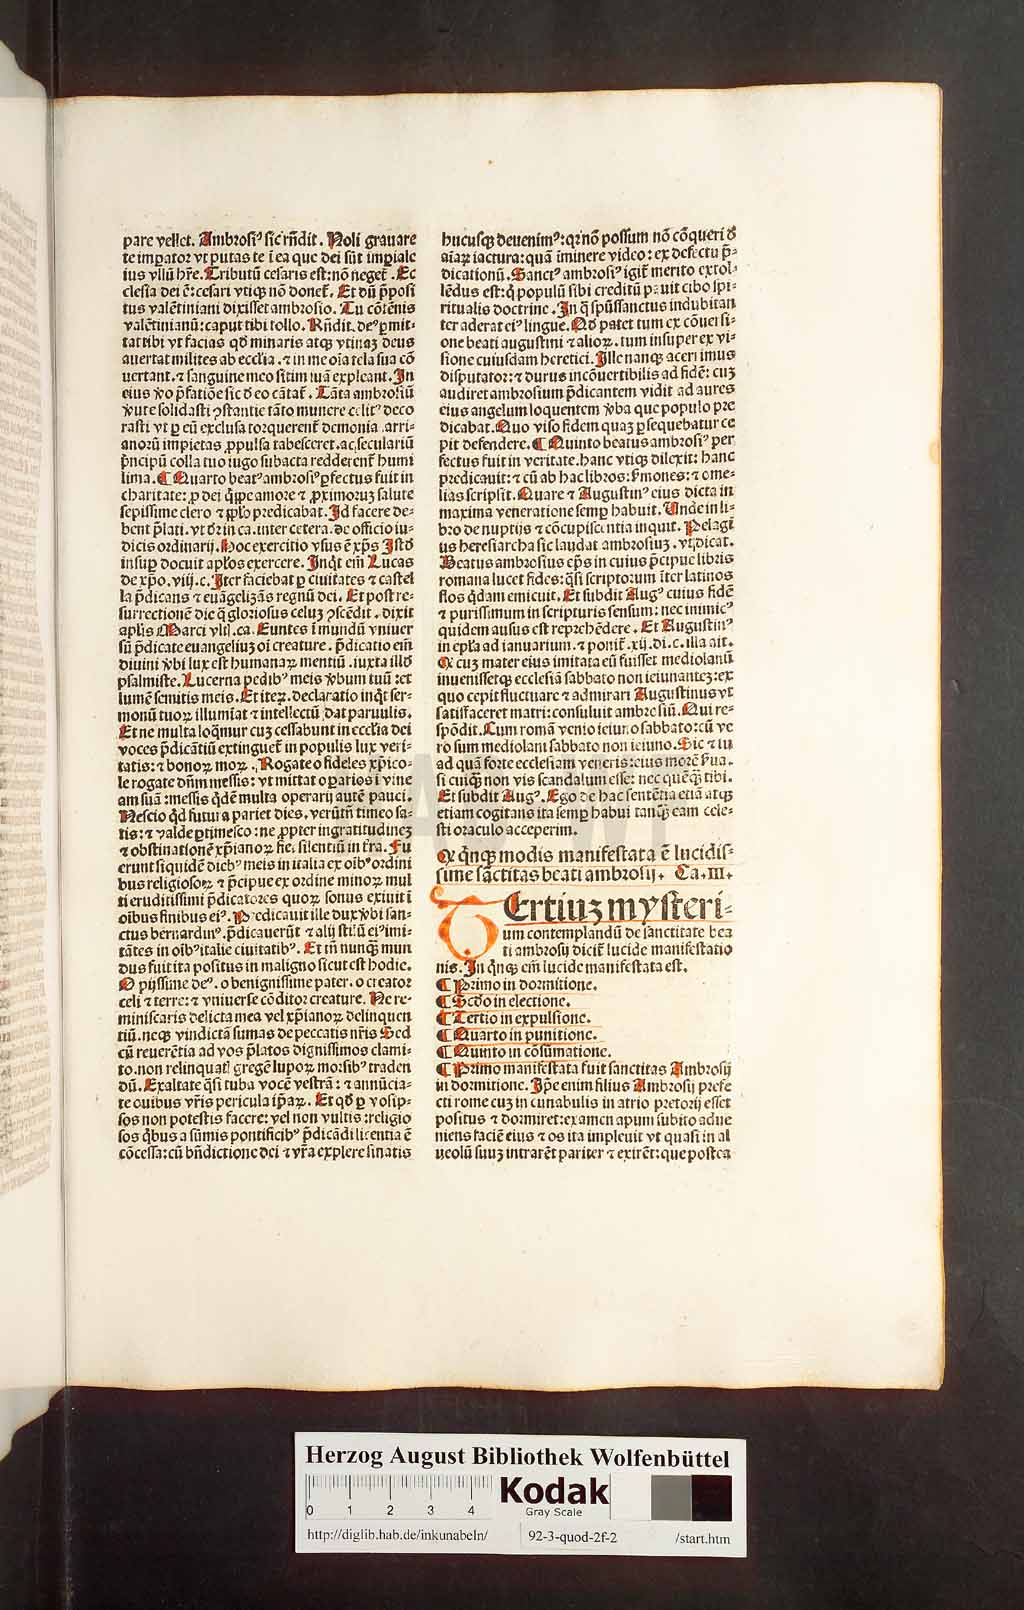 pare vellet. Ambrosiꝰ sic rñdit. Noli grauare
te impͣator vt putas te ī ea que dei sūt imꝑiale
ius vllū hr̄e. Tributū cesaris est: nō neget᷑. Ec
clesia dei ē: cesari vtiqꝫ nō donet᷑. Et dū p̄posi
tus valētiniani dixisset ambrosio. Tu cōtēnis
valētinianū: caput tibi tollo. Rn̄dit. deꝰ ꝑmit
tat tibi vt facias qd̄ minaris atqꝫ vtinaꝫ deus
auertat milites ab eccl̄ia. ⁊ in me oīa tela sua cō
uertant. ⁊ sanguine meo sitim suā expleant. In
eius v̄o p̄fatiōe sic d̄ eo cātat᷑. Tāta ambrosiū
v̄ute solidasti ꝯstantie tāto munere celitꝰ deco
rasti vt ꝑ eū exclusa torquerent᷑ demonia. arri-
anorū impietas ꝓpulsa tabesceret. ac seculariū
p̄ncipū colla tuo iugo subacta redderent᷑ humi
lima. ¶ Quarto beatꝰ ambrosiꝰ ꝑfectus fuit in
charitate: ꝓ dei q̄ippe amore ⁊ ꝓximoruꝫ salute
sepissime clero ⁊ pplo predicabat. Id facere de-
bent p̄lati. vt dr̄ in ca. inter cetera. de officio iu-
dicis ordinarij. Hoc exercitio vsus ē xp̄s Istd̄
insuꝑ docuit apl̄os exercere. Inqt em̄ Lucas
de xp̄o. viij. c. Iter faciebat ꝑ ciuitates ⁊ castel
la p̄dicans ⁊ euāgelizās regnū dei. Et post re-
surrectionē die q̄ gloriosus celuꝫ ꝯscēdit. dixit
aplis Marci vlt. ca. Euntes ī mundū vniuer
sū p̄dicate euangeliuꝫ oī creature. p̄dicatio em̄
diuini v̄bi lux est humanaꝝ mentiū. iuxta illd̄
psalmiste. Lucerna pedibꝰ meis v̄bum tuū: et
lumē semitis meis. Et iteꝝ. declaratio inqt ser-
monū tuoꝝ illumīat ⁊ intellectū dat paruulis.
Et ne multa loqmur cuꝫ cessabunt in eccl̄ia dei
voces p̄dicātiū extinguet᷑ in populis lux veri-
tatis: ⁊ bonoꝝ moꝝ. Rogate o fideles xp̄ico-
le rogate dn̄m messis: vt mittat oꝑarios ī vine
am suā: messis q̄dē multa operarij autē pauci.
Nescio qd̄ futura pariet dies. verūtn̄ timeo sa-
tis: ⁊ valde ꝑtimesco: ne ꝓpter ingratitudineꝫ
⁊ obstinationē xp̄ianoꝝ fiē. silentiū in tr̄a. Fu
erunt siquidē diebꝰ meis in italia ex oībꝰ ordini
bus religiosoꝝ ⁊ p̄cipue ex ordine minoꝝ mul
ti eruditissimi p̄dicatores quoꝝ sonus exiuit ī
oībus finibus eiꝰ. Predicauit ille dux v̄bi san-
ctus bernardinꝰ. p̄dicauerūt ⁊ alij stilū eiꝰ imi-
tātes in oībꝰ italie ciuitatibꝰ. Et tn̄ nunqꝫ mun
dus fuit ita positus in maligno sicut est hodie.
O pijssime deꝰ. o benignissime pater. o creator
celi ⁊ terre: ⁊ vniuerse cōditor creature. Ne re-
miniscaris delicta mea vel xp̄ianoꝝ delinquen
tiū. neqꝫ vindictā sumas de peccatis nr̄is Sed
cū reuerētia ad vos p̄latos dignissimos clami-
to. non relinquat᷑ gregē lupoꝝ morsibꝰ traden
dū. Exaltate q̄si tuba vocē vestrā: ⁊ annūcia-
te ouibus vr̄is pericula ip̄aꝝ. Et qd̄ ꝑ vosip-
sos non potestis facere: vel non vultis: religio
sos q̄bus a sūmis pontificibꝰ p̄dicādi licentia ē
cōcessa: cū bn̄dictione dei ⁊ vr̄a explere sinatis
hucusqꝫ deuenimꝰ: qꝛ nō possum nō cōqueri d̄
aīaꝝ iactura: quā iminere video: ex defectu p̄-
dicationū. Sanctꝰ ambrosiꝰ igit᷑ merito extol-
lēdus est: q̄ populū sibi creditū pauit cibo spi-
ritualis doctrine. In q̄ spūssanctus indubitan
ter aderat eiꝰ lingue. Qd̄ patet tum ex cōuersi-
one beati augustini ⁊ alioꝝ. tum insuper ex vi-
sione cuiusdam heretici. Ille nanqꝫ acerrimus
disputator: ⁊ durus incōuertibilis ad fidē: cuꝫ
audiret ambrosium p̄dicantem vidit ad aures
eius angelum loquentem v̄ba que populo pre
dicabat. Quo viso fidem quaꝫ ꝑsequebatur ce
pit defendere. ¶ Quinto beatus ambrosiꝰ per
fectus fuit in veritate. hanc vtiqꝫ dilexit: hanc
predicauit: ⁊ cū ab hac libros: s̄mones: ⁊ ome-
lias scripsit. Quare ⁊ Augustinꝰ eius dicta in
maxima veneratione semꝑ habuit. Unde in li-
bro de nuptijs ⁊ cōcupiscentia inquit. Pelagi
us heresiarcha sic laudat ambrosiuꝫ. vt dicat.
Beatus ambrosius ep̄s in cuius p̄cipue libris
romana lucet fides: q̄si scriptorum īter latinos
flos q̄dam emicuit. Et subdit Augꝰ cuius fidē
⁊ purissimum in scripturis sensum: nec inimicꝰ
quidem ausus est reprehēdere. Et Augustinꝰ
in epl̄a ad ianuarium. ⁊ ponit᷑. xij. di. c. illa ait.
Qꝛ cuꝫ mater eius imitata eū fuisset mediolanū
inuenissetqꝫ ecclesiā sabbato non ieiunantez: ex
quo cepit fluctuare ⁊ admirari Augustinus vt
satisfaceret matri: consuluit ambrosiū. Qui re-
spōdit. Cum romā venio ieiuno sabbato: cū ve
ro sum mediolani sabbato non ieiuno. Sic ⁊ tu
ad quā forte ecclesiam veneris: eius morē s̄ua.
si cuiqꝫ non vis scandalum esse: nec quēqꝫ tibi.
Et subdit Augꝰ. Ego de hac sentētia etiā atqꝫ
etiam cogitans ita semꝑ habui tanqꝫ eam cele-
sti oraculo acceperim.
Qꝛ qnqꝫ modis manifestata ē lucidis-
sime sāctitas beati ambrosij. Ca. III.
TErtiuꝫ mysteri-
um contemplandū de sanctitate bea
ti ambrosij dicit᷑ lucide manifestatio
nis. In qnqꝫ em̄ lucide manifestata est.
¶ Primo in dormitione.
¶ Scd̄o in electione.
¶ Tertio in expulsione.
¶ Quarto in punitione.
¶ Quinto in cōsūmatione.
¶ Primo manifestata fuit sanctitas Ambrosij
in dormitione. Ip̄e enim filius Ambrosij prefe
cti rome cuꝫ in cunabulis in atrio pretorij esset
positus ⁊ dormiret: examen apum subito adue
niens faciē eius ⁊ os ita impleuit vt quasi in al
ueolū suuꝫ intrarēt pariter ⁊ exirēt: que postea
Herzog August Bibliothek Wolfenbüttel
0 1 2 3 4
Kodak
Gray Scale
http://diglib.hab.de/inkunabeln/ 92-3-quod-2f-2 /start.htm